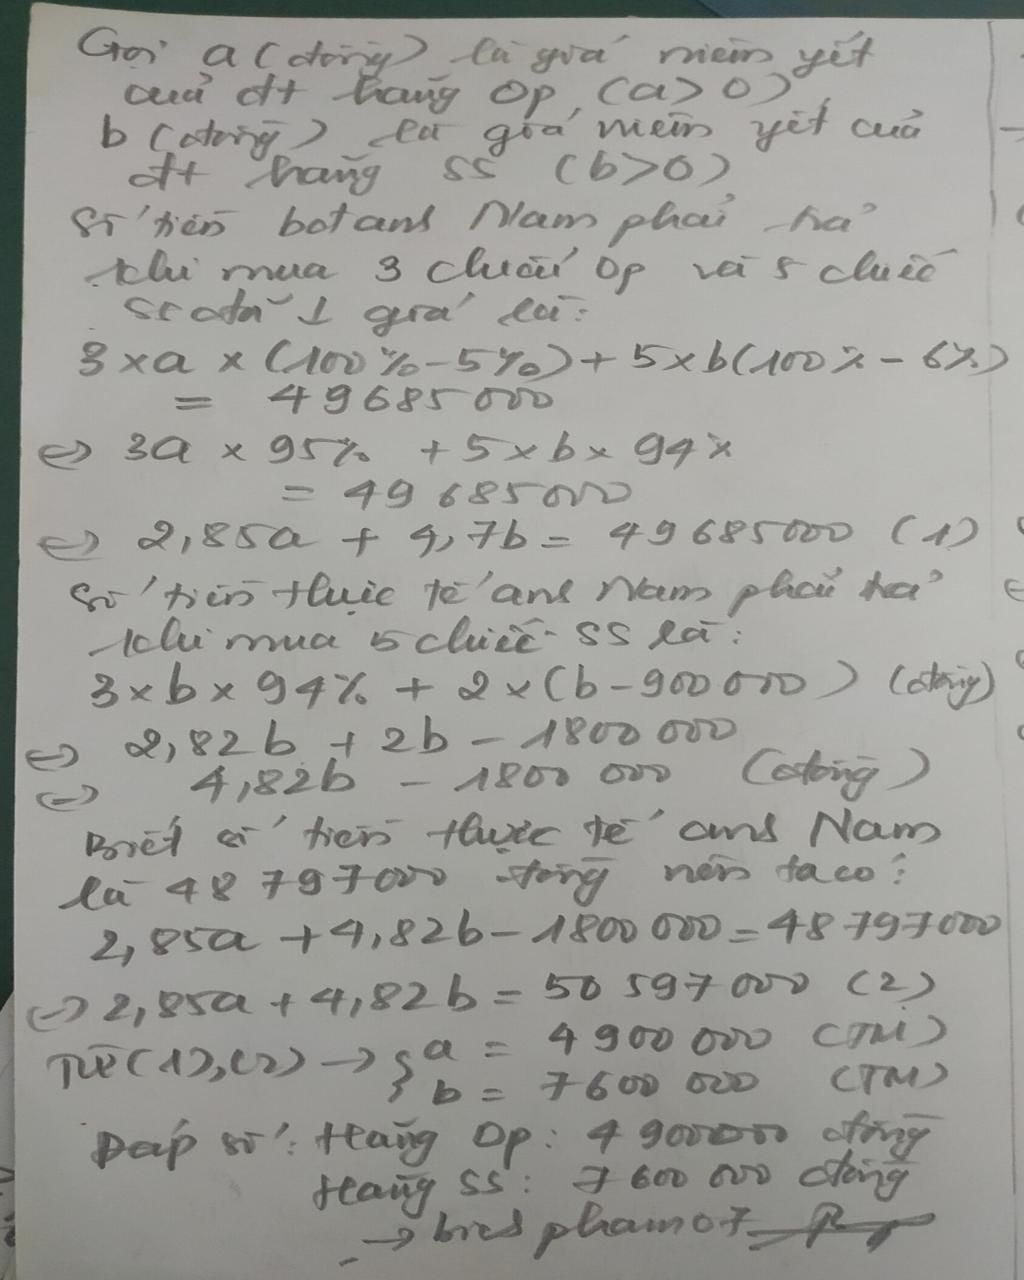 Gọi a (đồng) là giá niêm yết
của đt hãng Op, (a > 0)
b (đồng) là giá niêm yết của
đt hãng SS (b>0)
Số tiền bđ anh Nam phải trả
khi mua 3 chiếc Op và 5 chiếc
SS đã ↓ giá là:
3 x a x (100% - 5%) + 5 x b (100% - 6%)
= 49685000
<=> 3a x 95% + 5 x b x 94%
= 49 685000
<=> 2,85a + 4,7b = 49685000 (1)
Số tiền thực tế anh Nam phải trả
khi mua 5 chiếc SS là:
3 x b x 94% + 2 x (b - 900 000) (đồng)
<=> 2,82b + 2b - 1800 000
<=> 4,82b - 1800 000 (đồng)
Biết số tiền thực tế anh Nam
là 48 797000 đồng nên ta có:
2,85a + 4,82b - 1800 000 = 48 797000
<=> 2,85a + 4,82b = 50 597 000 (2)
Từ (1), (2) → { a = 4 900 000 (TM)
b = 7600 000 (TM)
Đáp số: Hãng Op: 4 900000 đồng
Hãng SS: 7 600 000 đồng
→ bics pham 07